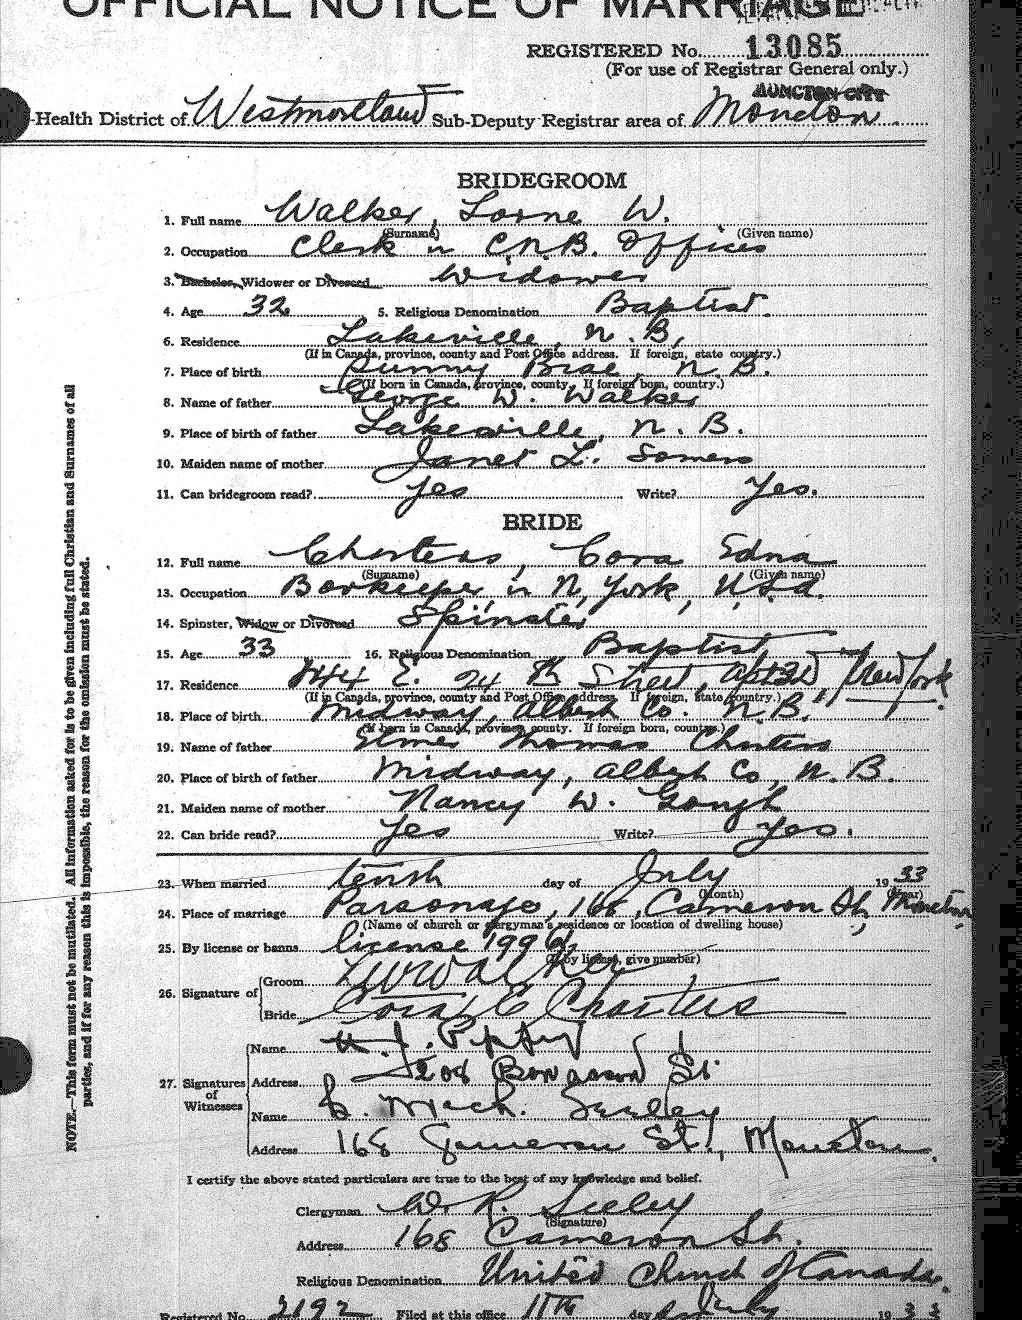 OFFICIAL NOTICE OF MARRIAGE
REGISTERED No. 13085
(For use of Registrar General only.)
MONCTON CITY
-Health District of Westmorland Sub-Deputy Registrar area of Moncton
BRIDEGROOM
1. Full name Walker, Lorne W.
(Surname) (Given name)
2. Occupation Clerk in C.N.R. Offices
3. Bachelor, Widower or Divorced Widower
4. Age 32 5. Religious Denomination Baptist.
6. Residence Lakeville, N.B,
(If in Canada, province, county and Post Office address. If foreign, state country.)
7. Place of birth Sunny Brae, N.B.
(If born in Canada, province, county. If foreign born, country.)
8. Name of father George W. Walker
9. Place of birth of father Lakeville, N.B.
10. Maiden name of mother Janet L. Somers
11. Can bridegroom read? Yes Write? Yes.
BRIDE
12. Full name Charters, Cora Edna
(Surname) (Given name)
13. Occupation Bookkeeper in N, York, U.S.A.
14. Spinster, Widow or Divorced Spinster
15. Age 33 16. Religious Denomination Baptist
17. Residence E. 24 th Street, New York
(If in Canada, province, county and Post Office address. If foreign, state country.)
18. Place of birth Midway, Albert Co. N.B.
(If born in Canada, province, county. If foreign born, country.)
19. Name of father Elmer Thomas Charters
20. Place of birth of father Midway, Albert Co, N.B.
21. Maiden name of mother Nancy W. Gough
22. Can bride read? Yes Write? Yes.
23. When married tenth day of July 1933
(Month) (Year)
24. Place of marriage Parsonage, 168, Cameron St, Moncton
(Name of church or clergyman's residence or location of dwelling house)
25. By license or banns license
(If by license, give number)
26. Signature of Groom LW Walker
Bride Cora E Charters
27. Signatures of Witnesses
Name
Address St.
Name Seeley
Address 168 Cameron St., Moncton.
I certify the above stated particulars are true to the best of my knowledge and belief.
Clergyman W. R. Seeley
(Signature)
Address 168 Cameron St.
Religious Denomination United Church of Canada.
Registered No. 2192 Filed at this office 11th day of July 1933
NOTE.—This form must not be mutilated. All information asked for is to be given including full Christian and Surnames of all
parties, and if for any reason this is impossible, the reason for the omission must be stated.